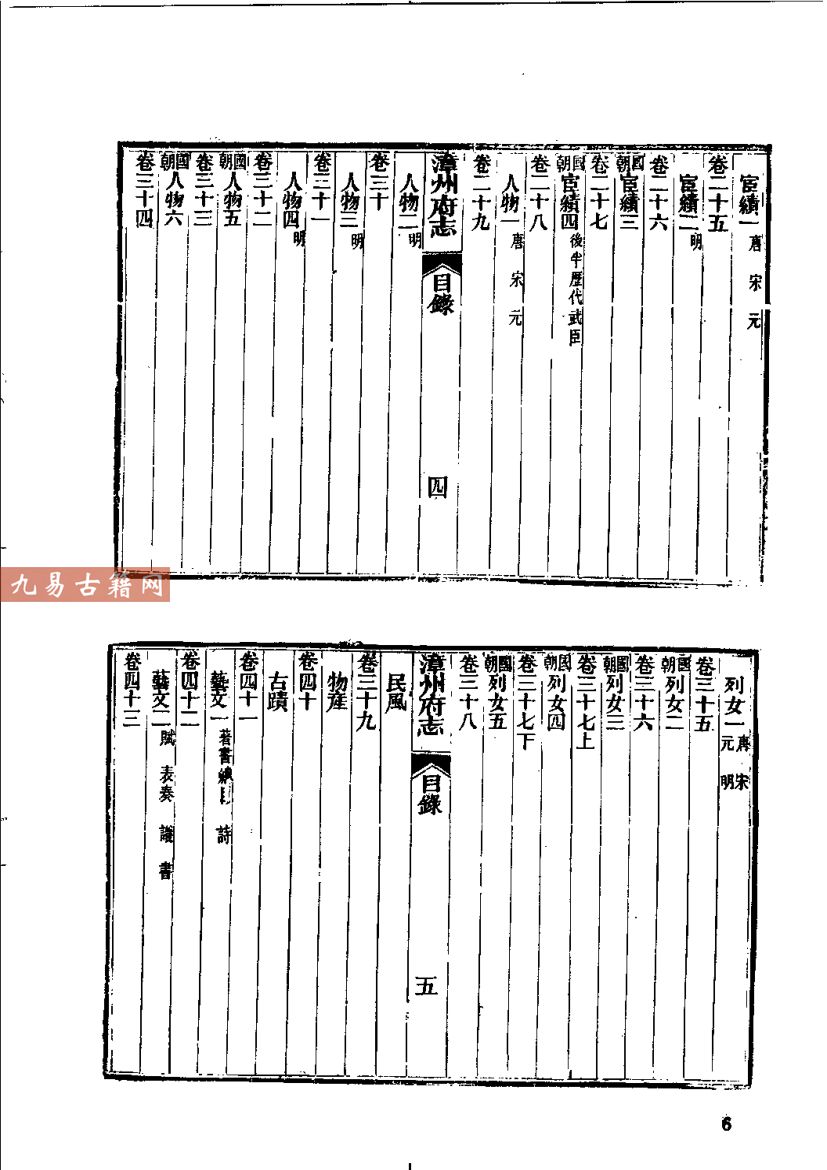 宦績一 唐 宋 元
卷二十五
宦績二 明
卷二十六
國朝宦績三
卷二十七
國朝宦績四 後半歷代武臣
卷二十八
人物一 唐 宋 元
卷二十九
漳州府志 目錄 四
人物二 明
卷三十
人物三 明
卷三十一
人物四 明
卷三十二
國朝人物五
卷三十三
國朝人物六
卷三十四
九易古籍网
列女一 唐 宋 元 明
卷三十五
國朝列女二
卷三十六
國朝列女三
卷三十七上
國朝列女四
卷三十七下
國朝列女五
卷三十八
漳州府志 目錄 五
民風
卷三十九
物產
卷四十
古蹟
卷四十一
藝文一 著書 詩
卷四十二
藝文二 賦 表奏 議 書
卷四十三
6